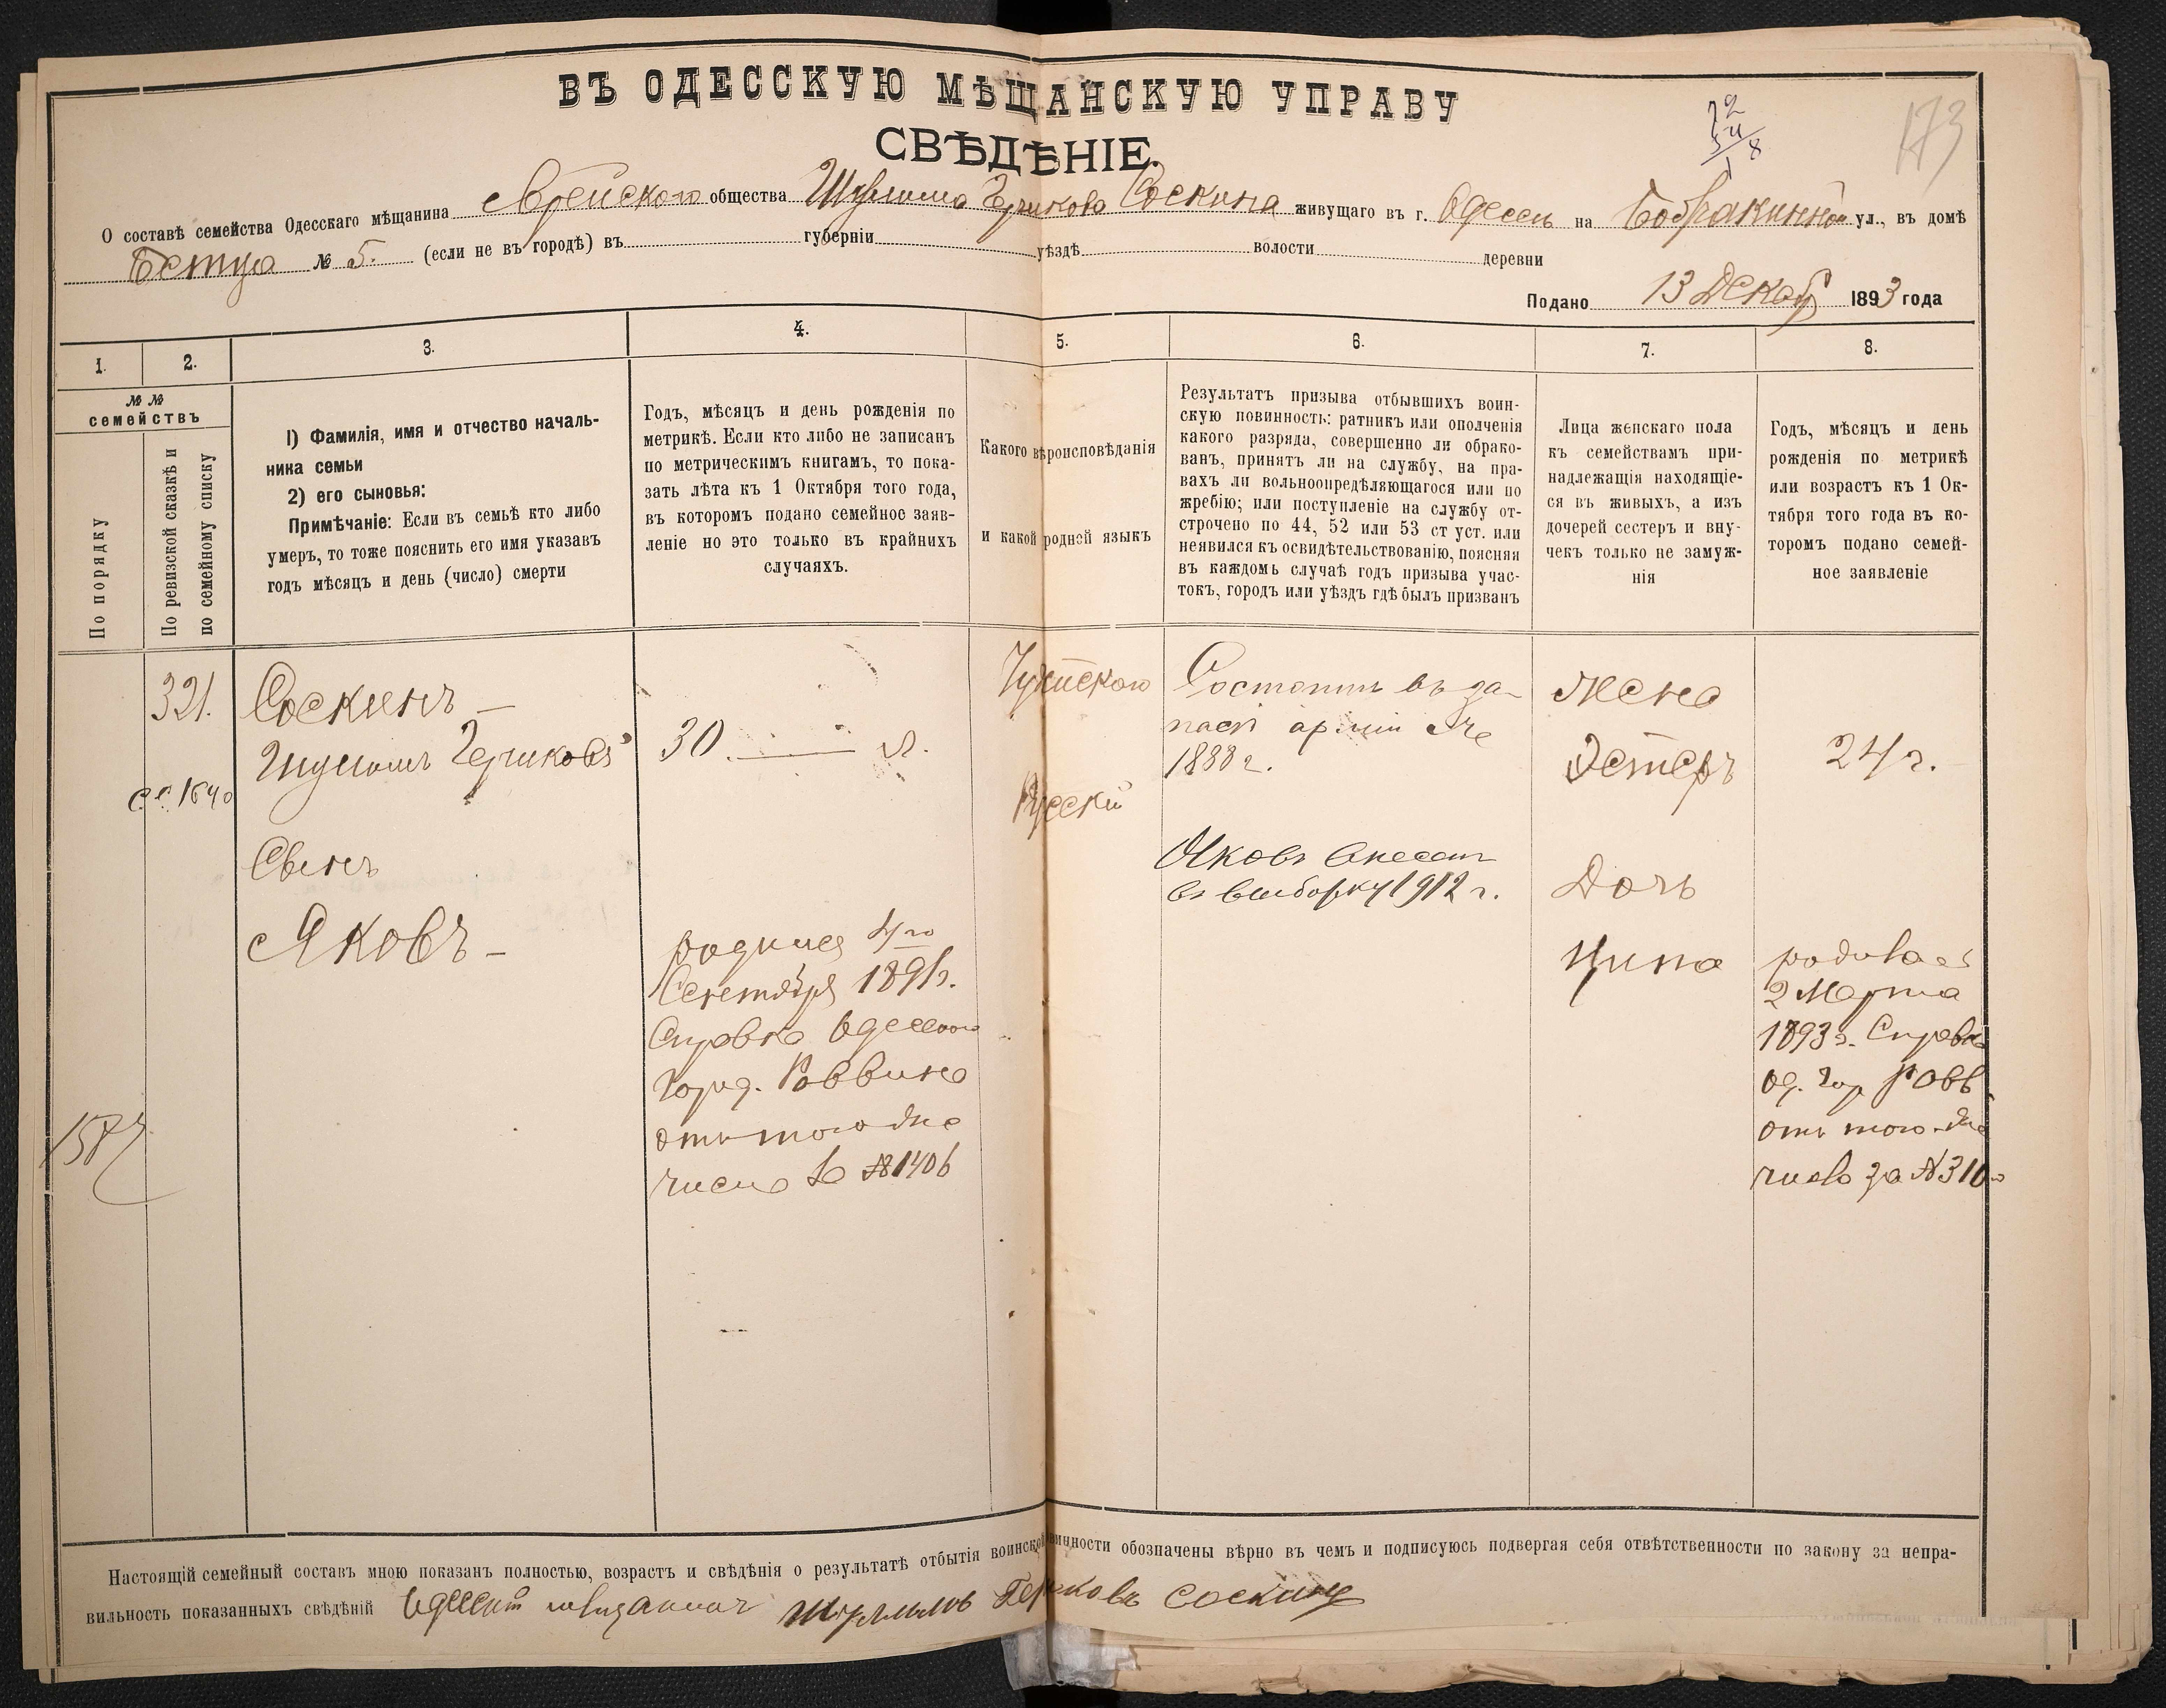 ВЪ ОДЕССКУЮ МѢЩАНСКУЮ УПРАВУ
СВѢДѢНІЕ.
173
О составѣ семейства Одесскаго мѣщанина Еврейскаго общества Шулима Гершкова Соскина живущаго въ г. Одессѣ на ул., въ домѣ
№ 5. (если не въ городѣ) въ губерніи уѣздѣ волости деревни
Подано 13 Декаб 1893 года
1. 2. 3. 4. 5. 6. 7. 8.
№ №
семействъ
По порядку
По ревизской сказкѣ и
по семейному списку
1) Фамилія, имя и отчество началь-
ника семьи
2) его сыновья:
Примѣчаніе: Если въ семьѣ кто либо
умеръ, то тоже пояснить его имя указавъ
годъ мѣсяцъ и день (число) смерти
Годъ, мѣсяцъ и день рожденія по
метрикѣ. Если кто либо не записанъ
по метрическимъ книгамъ, то пока-
зать лѣта къ 1 Октября того года,
въ которомъ подано семейное заяв-
леніе но это только въ крайнихъ
случаяхъ.
Какого вѣроисповѣданія
и какой родной языкъ
Результатъ призыва отбывшихъ воин-
скую повинность: ратникъ или ополченія
какого разряда, совершенно ли обрако-
ванъ, принятъ ли на службу, на пра-
вахъ ли вольноопредѣляющагося или по
жребію; или поступленіе на службу от-
строчено по 44, 52 или 53 ст уст. или
неявился къ освидѣтельствованію, поясняя
въ каждомъ случаѣ годъ призыва учас-
токъ, городъ или уѣздъ гдѣ былъ призванъ
Лица женскаго пола
къ семействамъ при-
надлежащія находящіе-
ся въ живыхъ, а изъ
дочерей сестеръ и вну-
чекъ только не замуж-
нія
Годъ, мѣсяцъ и день
рожденія по метрикѣ
или возрастъ къ 1 Ок-
тября того года въ ко-
торомъ подано семей-
ное заявленіе
321.
Соскинъ
Шулимъ Гершковъ
1640
30 л.
Іудейского
Русскій
Состоитъ въ за-
пасѣ арміи
1888 г.
Жена
Эстеръ
24 г.
Сынъ
Яковъ
родился 4го
Сентября 1891г.
Справка Одесскаго
Город. Раввина
отъ того же
числа за №1406
Яковъ внесенъ
въ выборку 1912 г.
Дочь
Ципа
родилась
2 Марта
1893 г. Справка
Од. Гор Равв.
отъ того же
числа за №310
Настоящій семейный составъ мною показанъ полностью, возрастъ и свѣдѣнія о результатѣ отбытія воинской повинности обозначены вѣрно въ чемъ и подписуюсь подвергая себя отвѣтственности по закону за непра-
вильность показанныхъ свѣдѣній Одесскій мѣщанинъ Шулимъ Герковъ Соскинъ